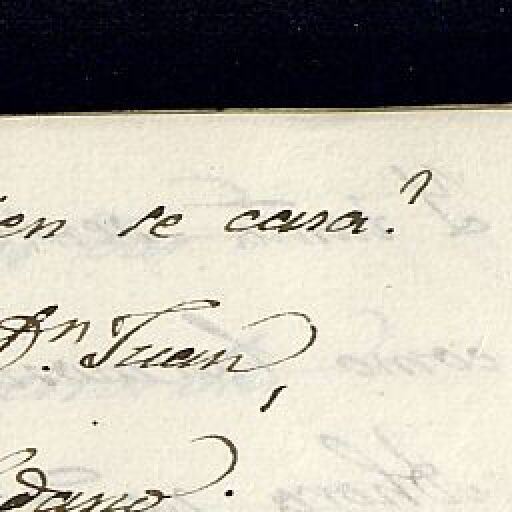 en se casa?
Dn. Juan,
dano.